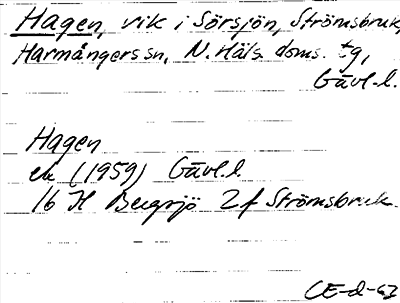 Hagen, vik i Sörsjön, Strömsbruk,
Harmångers sn, N. Häls. doms. tg,
Gävl. l.
Hagen
ek (1959) Gävl. l
16 H Bergsjö 2f Strömsbruk
CE-d-63